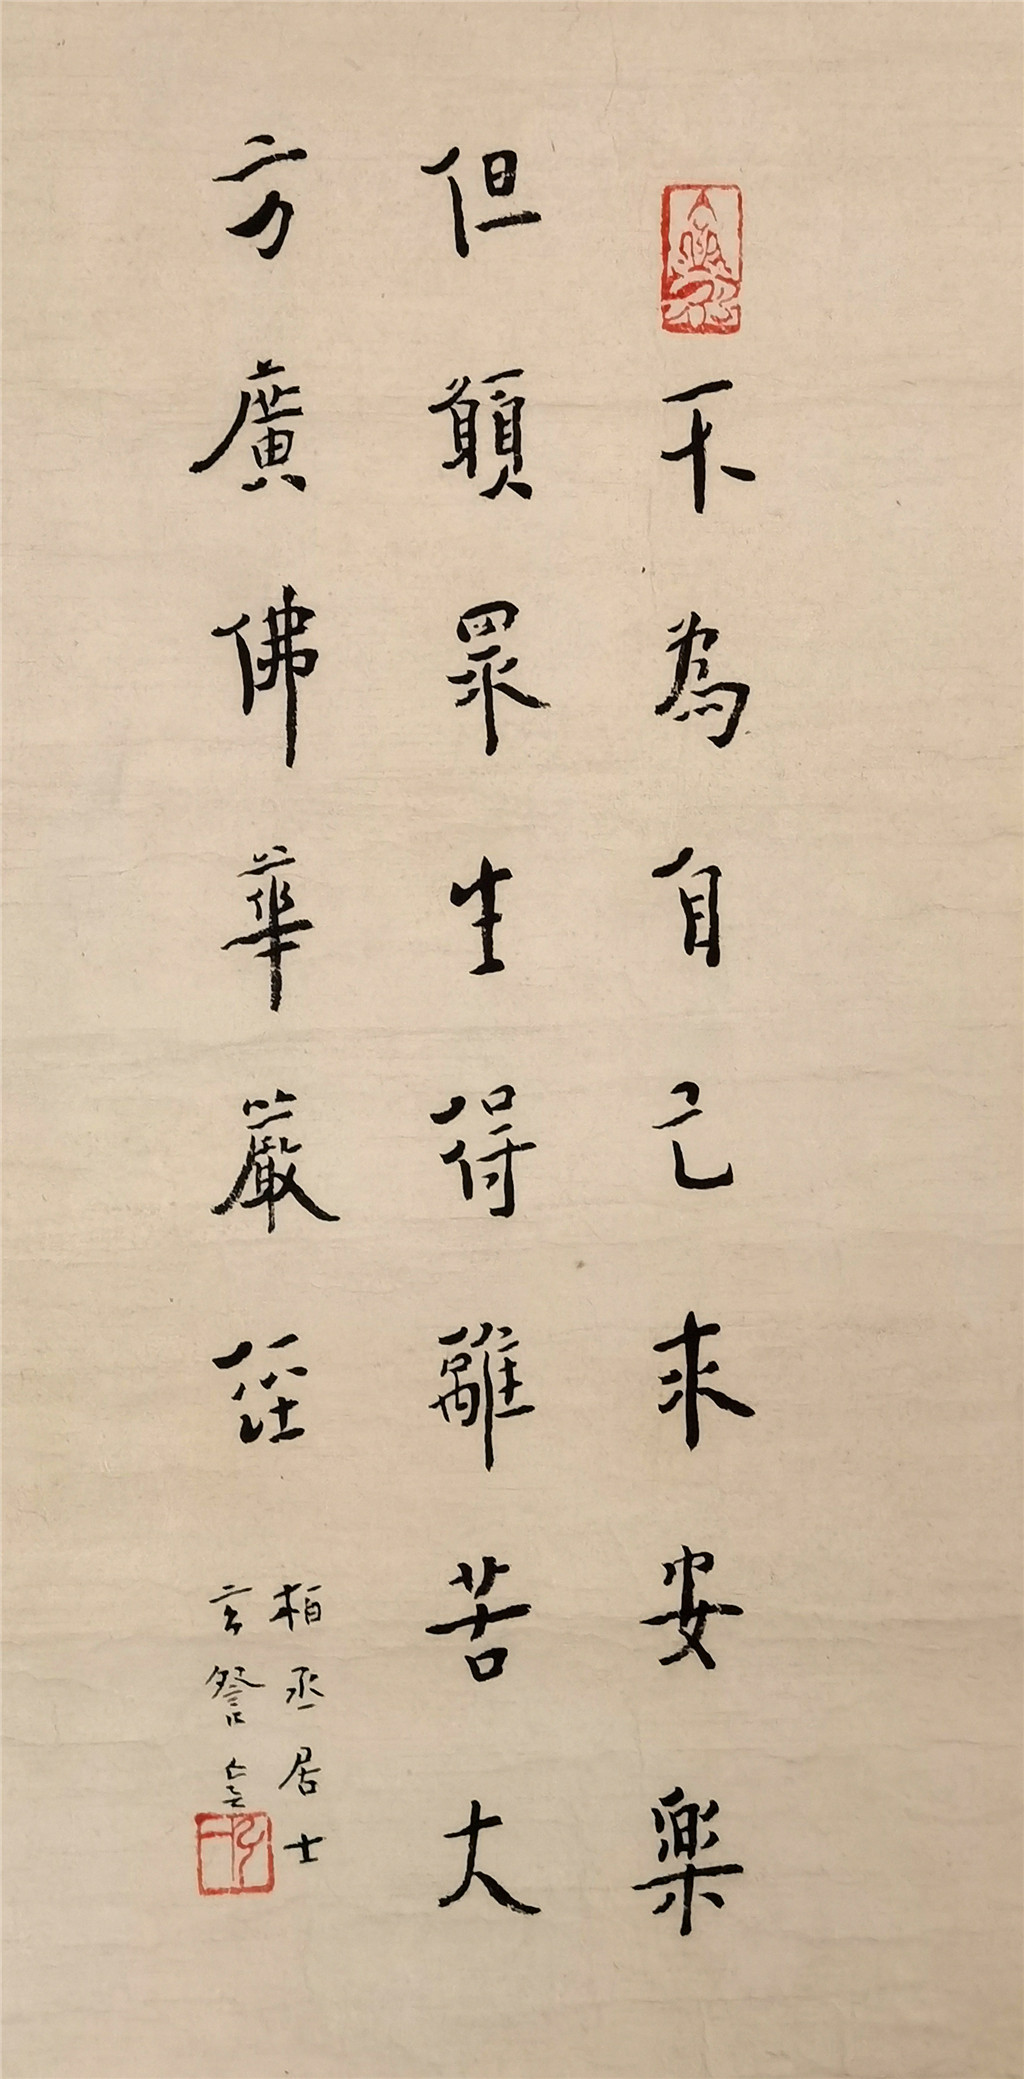 不為自己求安樂
但願眾生得離苦大
方廣佛華嚴經
柏丞居士
玄詧